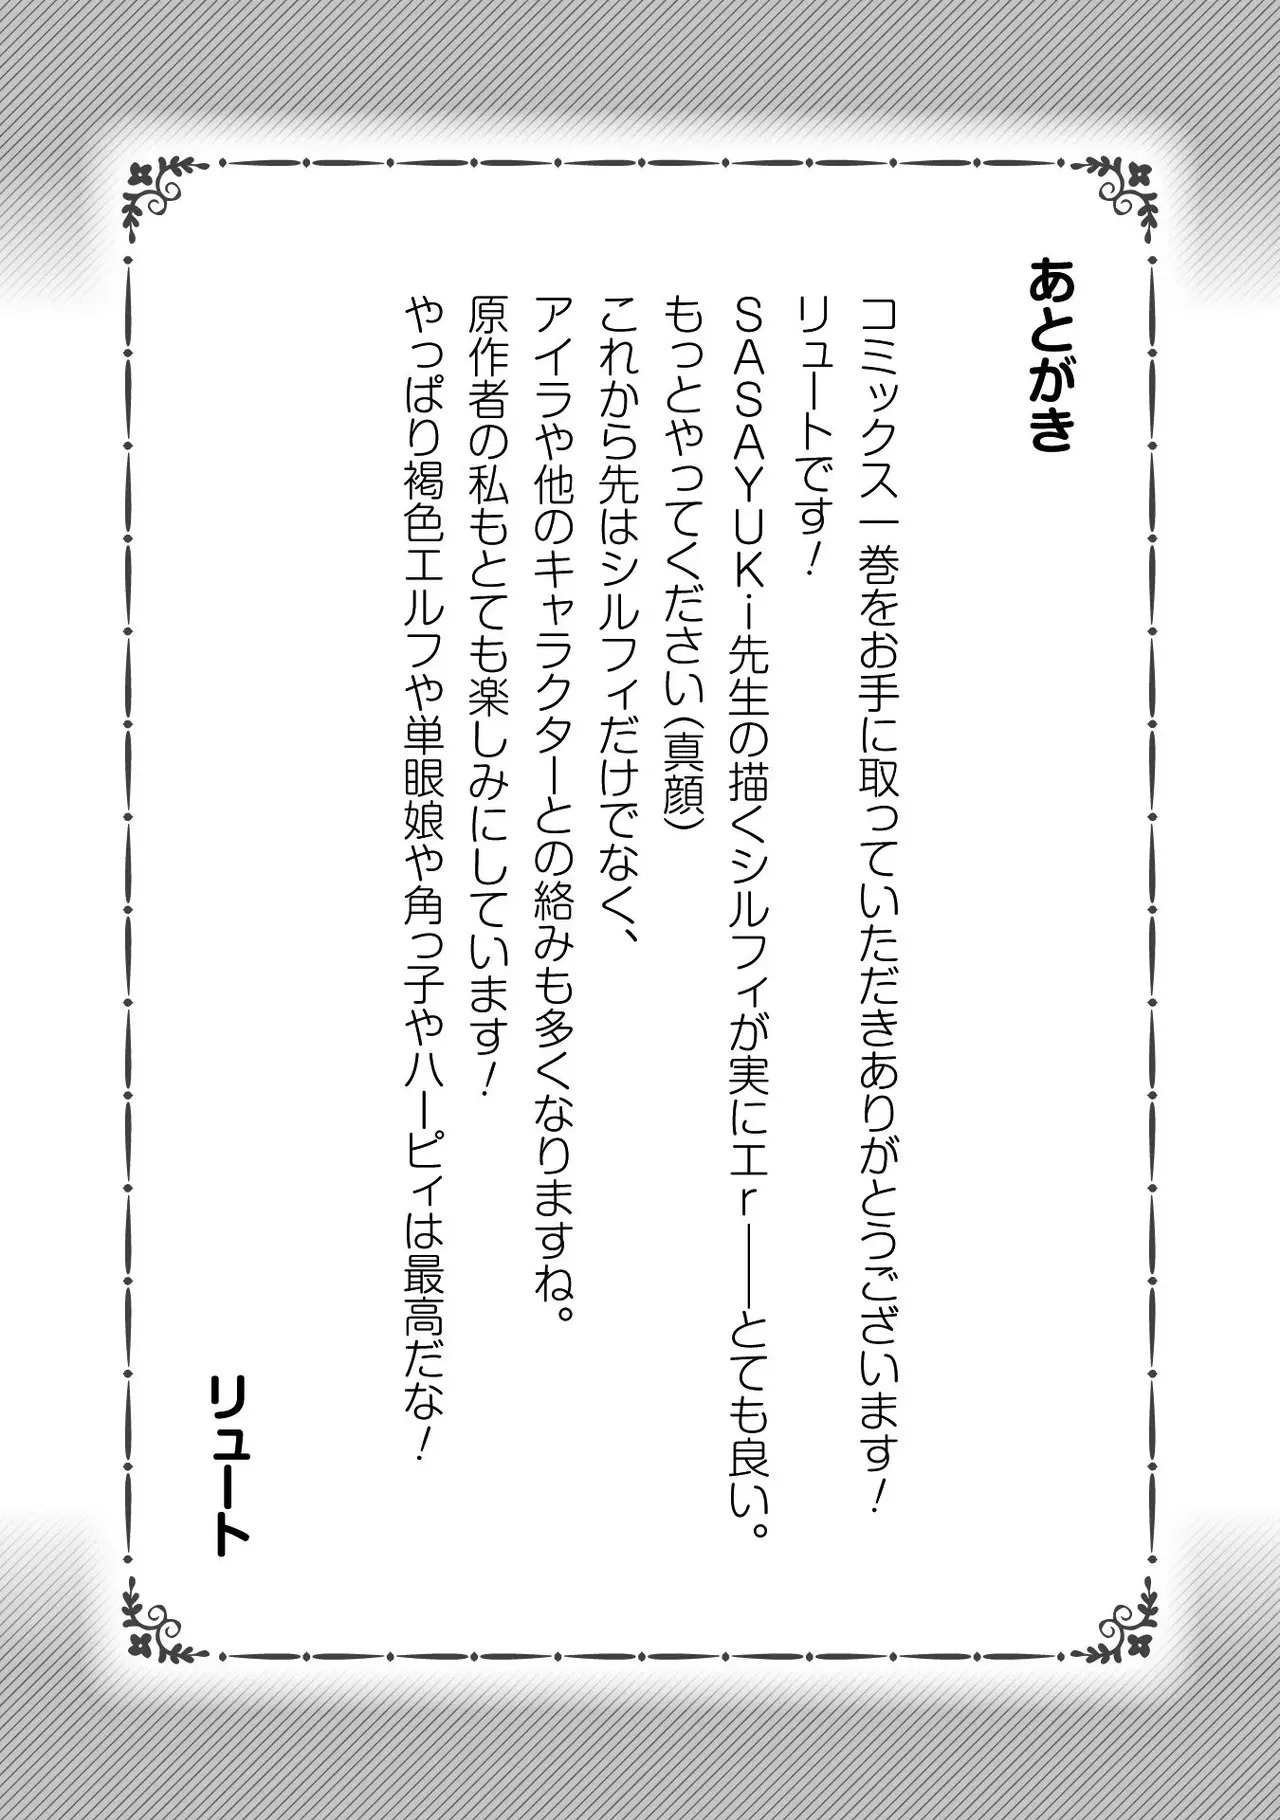 あとがき
コミックス一巻をお手に取っていただきありがとうございます！
リュートです！
ＳＡＳＡＹＵＫｉ先生の描くシルフィが実にエｒ――とても良い。
もっとやってください（真顔）
これから先はシルフィだけでなく、
アイラや他のキャラクターとの絡みも多くなりますね。
原作者の私もとても楽しみにしています！
やっぱり褐色エルフや単眼娘や角っ子やハーピィは最高だな！
リュート